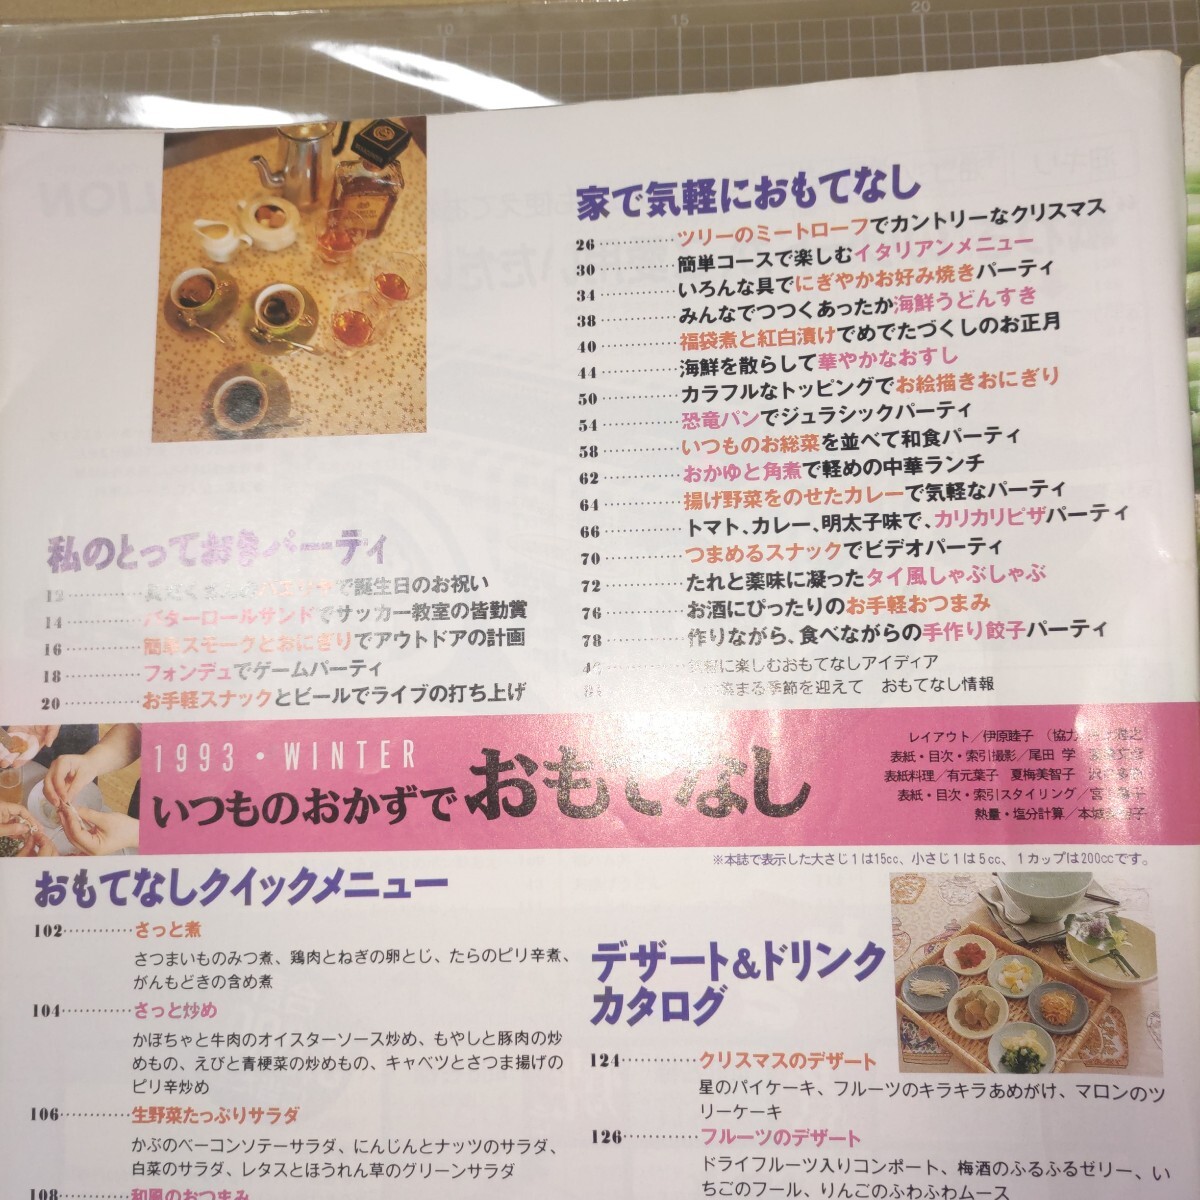 5 10 15 20
家で気軽におもてなし
26 ツリーのミートローフでカントリーなクリスマス
30 簡単コースで楽しむイタリアンメニュー
34 いろんな具でにぎやかお好み焼きパーティ
38 みんなでつつくあったか海鮮うどんすき
40 福袋煮と紅白漬けでめでたづくしのお正月
44 海鮮を散らして華やかなおすし
50 カラフルなトッピングでお絵描きおにぎり
54 恐竜パンでジュラシックパーティ
58 いつものお総菜を並べて和食パーティ
62 おかゆと角煮で軽めの中華ランチ
64 揚げ野菜をのせたカレーで気軽なパーティ
66 トマト、カレー、明太子味で、カリカリピザパーティ
70 つまめるスナックでビデオパーティ
72 たれと薬味に凝ったタイ風しゃぶしゃぶ
76 お酒にぴったりのお手軽おつまみ
78 作りながら、食べながらの手作り餃子パーティ
に楽しむおもてなしアイディア
まる季節を迎えて おもてなし情報
私のとっておきパーティ
12 で誕生日のお祝い
14 バターロールサンドでサッカー教室の皆勤賞
16 簡単スモークとおにぎりでアウトドアの計画
18 フォンデュでゲームパーティ
20 お手軽スナックとビールでライブの打ち上げ
1993・WINTER
いつものおかずでおもてなし
レイアウト／伊原睦子 （協力
表紙・目次・索引撮影／尾田 学
表紙料理／有元葉子 夏梅美智子
表紙・目次・索引スタイリング／宮
熱量・塩分計算／本城
※本誌で表示した大さじ1は15cc、小さじ1は5cc、1カップは200ccです。
おもてなしクイックメニュー
102 さっと煮
さつまいものみつ煮、鶏肉とねぎの卵とじ、たらのピリ辛煮、
がんもどきの含め煮
104 さっと炒め
かぼちゃと牛肉のオイスターソース炒め、もやしと豚肉の炒
めもの、えびと青梗菜の炒めもの、キャベツとさつま揚げの
ピリ辛炒め
106 生野菜たっぷりサラダ
かぶのベーコンソテーサラダ、にんじんとナッツのサラダ、
白菜のサラダ、レタスとほうれん草のグリーンサラダ
108 和風のおつまみ
デザート&ドリンク
カタログ
124 クリスマスのデザート
星のパイケーキ、フルーツのキラキラあめがけ、マロンのツ
リーケーキ
126 フルーツのデザート
ドライフルーツ入りコンポート、梅酒のふるふるゼリー、い
ちごのフール、りんごのふわふわムース